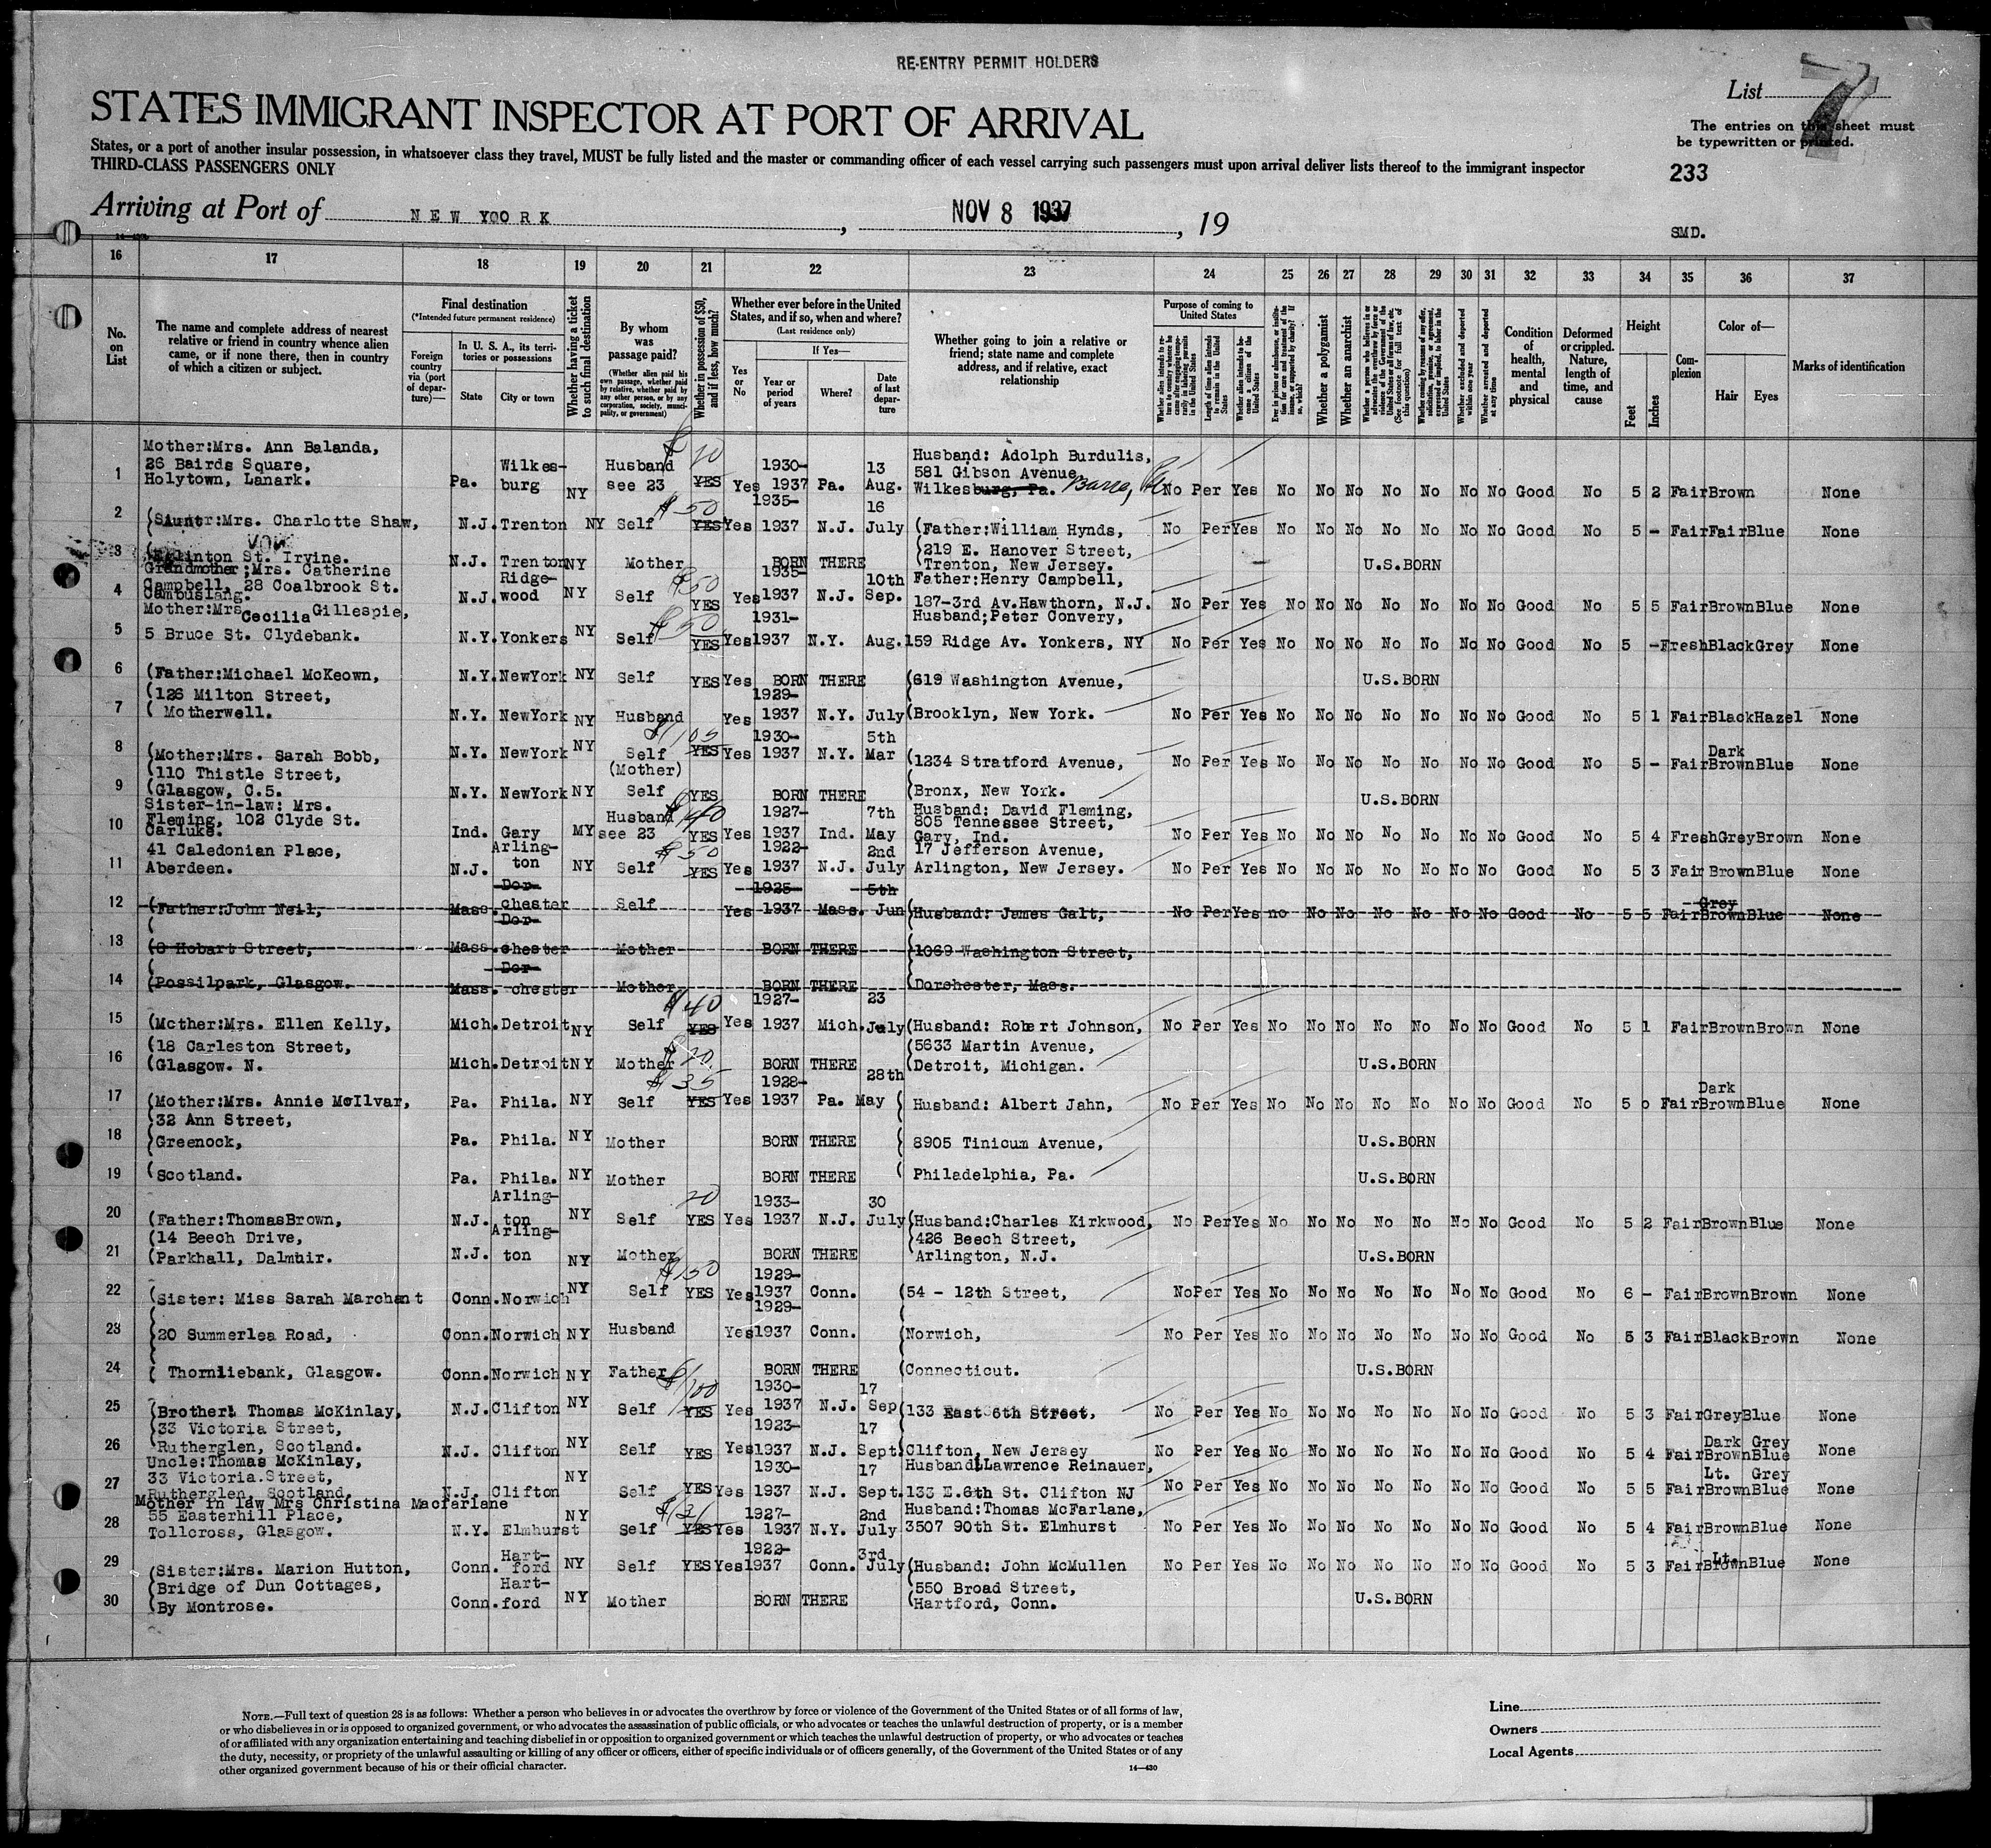 RE-ENTRY PERMIT HOLDERS
List 7
STATES IMMIGRANT INSPECTOR AT PORT OF ARRIVAL
The entries on this sheet must
be typewritten or printed.
States, or a port of another insular possession, in whatsoever class they travel, MUST be fully listed and the master or commanding officer of each vessel carrying such passengers must upon arrival deliver lists thereof to the immigrant inspector
THIRD-CLASS PASSENGERS ONLY
233
Arriving at Port of NEW YOORK, NOV 8 1937, 19
SMD.
16 17 18 19 20 21 22 23 24 25 26 27 28 29 30 31 32 33 34 35 36 37
No. on List
The name and complete address of nearest
relative or friend in country whence alien
came, or if none there, then in country
of which a citizen or subject.
Final destination
(*Intended future permanent residence)
Foreign country via (port of departure)—
In U. S. A., its territories or possessions
State
City or town
Whether having a ticket to such final destination
By whom was passage paid?
(Whether alien paid his own passage, whether paid by relative, whether paid by any other person, or by any corporation, society, municipality, or government)
Whether in possession of $50, and if less, how much?
Whether ever before in the United
States, and if so, when and where?
(Last residence only)
Yes or No
If Yes—
Year or period of years
Where?
Date of last departure
Whether going to join a relative or
friend; state name and complete
address, and if relative, exact
relationship
Purpose of coming to United States
Whether a polygamist
Whether an anarchist
Whether excluded and deported within one year
Whether arrested and deported at any time
Condition of health, mental and physical
Deformed or crippled. Nature, length of time, and cause
Height
Feet
Inches
Complexion
Color of—
Hair
Eyes
Marks of identification
1 Mother:Mrs. Ann Balanda, 26 Bairds Square, Holytown, Lanark. Pa. Wilkes-burg NY Husband see 23 $20 YES Yes 1930-1937 Pa. 13 Aug. Husband: Adolph Burdulis, 581 Gibson Avenue, Wilkesburg, Pa. Barre, Pa No Per Yes No No No No No No No Good No 5 2 Fair Brown None
2 Mrs. Charlotte Shaw, N.J. Trenton NY Self $50 YES Yes 1935-1937 N.J. 16 July (Father:William Hynds, No Per Yes No No No No No No No Good No 5 - Fair Fair Blue None
3 St. Irvine. N.J. Trenton NY Mother BORN THERE 219 E. Hanover Street, Trenton, New Jersey. U.S.BORN
4 Grandmother;Mrs. Catherine Campbell, 28 Coalbrook St. Cambuslang. N.J. Ridge-wood NY Self $50 YES Yes 1935-1937 N.J. 10th Sep. Father:Henry Campbell, 187-3rd Av.Hawthorn, N.J. No Per Yes No No No No No No No Good No 5 5 Fair Brown Blue None
5 Mother:Mrs Cecilia Gillespie, 5 Bruce St. Clydebank. N.Y. Yonkers NY Self $50 YES Yes 1931-1937 N.Y. Aug. Husband;Peter Convery, 159 Ridge Av. Yonkers, NY No Per Yes No No No No No No No Good No 5 - Fresh Black Grey None
6 (Father:Michael McKeown, (126 Milton Street, N.Y. NewYork NY Self YES Yes BORN THERE (619 Washington Avenue, U.S.BORN
7 ( Motherwell. N.Y. NewYork NY Husband Yes 1929-1937 N.Y. July (Brooklyn, New York. No Per Yes No No No No No No No Good No 5 1 Fair Black Hazel None
8 (Mother:Mrs. Sarah Bobb, (110 Thistle Street, N.Y. NewYork NY Self $105 YES Yes 1930-1937 N.Y. 5th Mar (1234 Stratford Avenue, No Per Yes No No No No No No No Good No 5 - Fair Dark Brown Blue None
9 (Glasgow, C.5. N.Y. NewYork NY (Mother) Self YES BORN THERE (Bronx, New York. U.S.BORN
10 Sister-in-law: Mrs. Fleming, 102 Clyde St. Carluke. Ind. Gary MY Husband see 23 $40 YES Yes 1927-1937 Ind. 7th May Husband: David Fleming, 805 Tennessee Street, Gary, Ind. No Per Yes No No No No No No No Good No 5 4 Fresh Grey Brown None
11 41 Caledonian Place, Aberdeen. N.J. Arling-ton NY Self $50 YES Yes 1922-1937 N.J. 2nd July 17 Jefferson Avenue, Arlington, New Jersey. No Per Yes No No No No No No No Good No 5 3 Fair Brown Blue None
12 (Father:John Neil, Mass. Dor-chester Self Yes 1925-1937 Mass. 5th Jun (Husband: James Galt, No Per Yes no No No No No No No Good No 5 5 Fair Grey Brown Blue None
13 (8 Hobart Street, Mass. Dor-chester Mother BORN THERE (1069 Washington Street,
14 (Possilpark, Glasgow. Mass. Dor-chester Mother BORN THERE (Dorchester, Mass.
15 (Mother:Mrs. Ellen Kelly, (18 Carleston Street, Mich. Detroit NY Self $40 YES Yes 1927-1937 Mich. 23 July (Husband: Robert Johnson, (5633 Martin Avenue, No Per Yes No No No No No No No Good No 5 1 Fair Brown Brown None
16 (Glasgow. N. Mich. Detroit NY Mother $20 BORN THERE (Detroit, Michigan. U.S.BORN
17 (Mother:Mrs. Annie McIlvar, 32 Ann Street, Pa. Phila. NY Self $35 YES Yes 1928-1937 Pa. 28th May (Husband: Albert Jahn, No Per Yes No No No No No No No Good No 5 0 Fair Dark Brown Blue None
18 Greenock, Pa. Phila. NY Mother BORN THERE ( 8905 Tinicum Avenue, U.S.BORN
19 (Scotland. Pa. Phila. NY Mother BORN THERE ( Philadelphia, Pa. U.S.BORN
20 (Father:ThomasBrown, (14 Beech Drive, N.J. Arling-ton NY Self 20 YES Yes 1933-1937 N.J. 30 July (Husband:Charles Kirkwood, 426 Beech Street, No Per Yes No No No No No No No Good No 5 2 Fair Brown Blue None
21 (Parkhall, Dalmuir. N.J. Arling-ton NY Mother BORN THERE Arlington, N.J. U.S.BORN
22 (Sister: Miss Sarah Marchant Conn. Norwich NY Self $150 YES Yes 1929-1937 Conn. (54 - 12th Street, No Per Yes No No No No No No No Good No 6 - Fair Brown Brown None
23 20 Summerlea Road, Conn. Norwich NY Husband Yes 1929-1937 Conn. (Norwich, No Per Yes No No No No No No No Good No 5 3 Fair Black Brown None
24 ( Thornliebank, Glasgow. Conn. Norwich NY Father BORN THERE (Connecticut. U.S.BORN
25 (Brother: Thomas McKinlay, 33 Victoria Street, N.J. Clifton NY Self $100 YES Yes 1930-1937 N.J. 17 Sep (133 East 6th Street, No Per Yes No No No No No No No Good No 5 3 Fair Grey Blue None
26 Rutherglen, Scotland. N.J. Clifton NY Self YES Yes 1923-1937 N.J. 17 Sept. Clifton, New Jersey No Per Yes No No No No No No No Good No 5 4 Fair Dark Brown Grey Blue None
27 Uncle:Thomas McKinlay, 33 Victoria.Street, Rutherglen, Scotland. N.J. Clifton NY Self YES Yes 1930-1937 N.J. 17 Sept. Husband:Lawrence Reinauer, 133 E.6th St. Clifton NJ No Per Yes No No No No No No No Good No 5 5 Fair Lt. Brown Grey Blue None
28 Mother in law Mrs Christina Macfarlane 55 Easterhill Place, Tollcross, Glasgow. N.Y. Elmhurst NY Self YES Yes 1927-1937 N.Y. 2nd July Husband:Thomas McFarlane, 3507 90th St. Elmhurst No Per Yes No No No No No No No Good No 5 4 Fair Brown Blue None
29 (Sister:Mrs. Marion Hutton, (Bridge of Dun Cottages, Conn. Hart-ford NY Self YES Yes 1922-1937 Conn. 3rd July (Husband: John McMullen (550 Broad Street, No Per Yes No No No No No No No Good No 5 3 Fair Lt. Brown Blue None
30 (By Montrose. Conn. Hart-ford NY Mother BORN THERE (Hartford, Conn. U.S.BORN
NOTE.—Full text of question 28 is as follows: Whether a person who believes in or advocates the overthrow by force or violence of the Government of the United States or of all forms of law,
or who disbelieves in or is opposed to organized government, or who advocates the assassination of public officials, or who advocates or teaches the unlawful destruction of property, or is a member
of or affiliated with any organization entertaining and teaching disbelief in or opposition to organized government or which teaches the unlawful destruction of property, or who advocates or teaches
the duty, necessity, or propriety of the unlawful assaulting or killing of any officer or officers, either of specific individuals or of officers generally, of the Government of the United States or of any
other organized government because of his or their official character.
14—430
Line
Owners
Local Agents